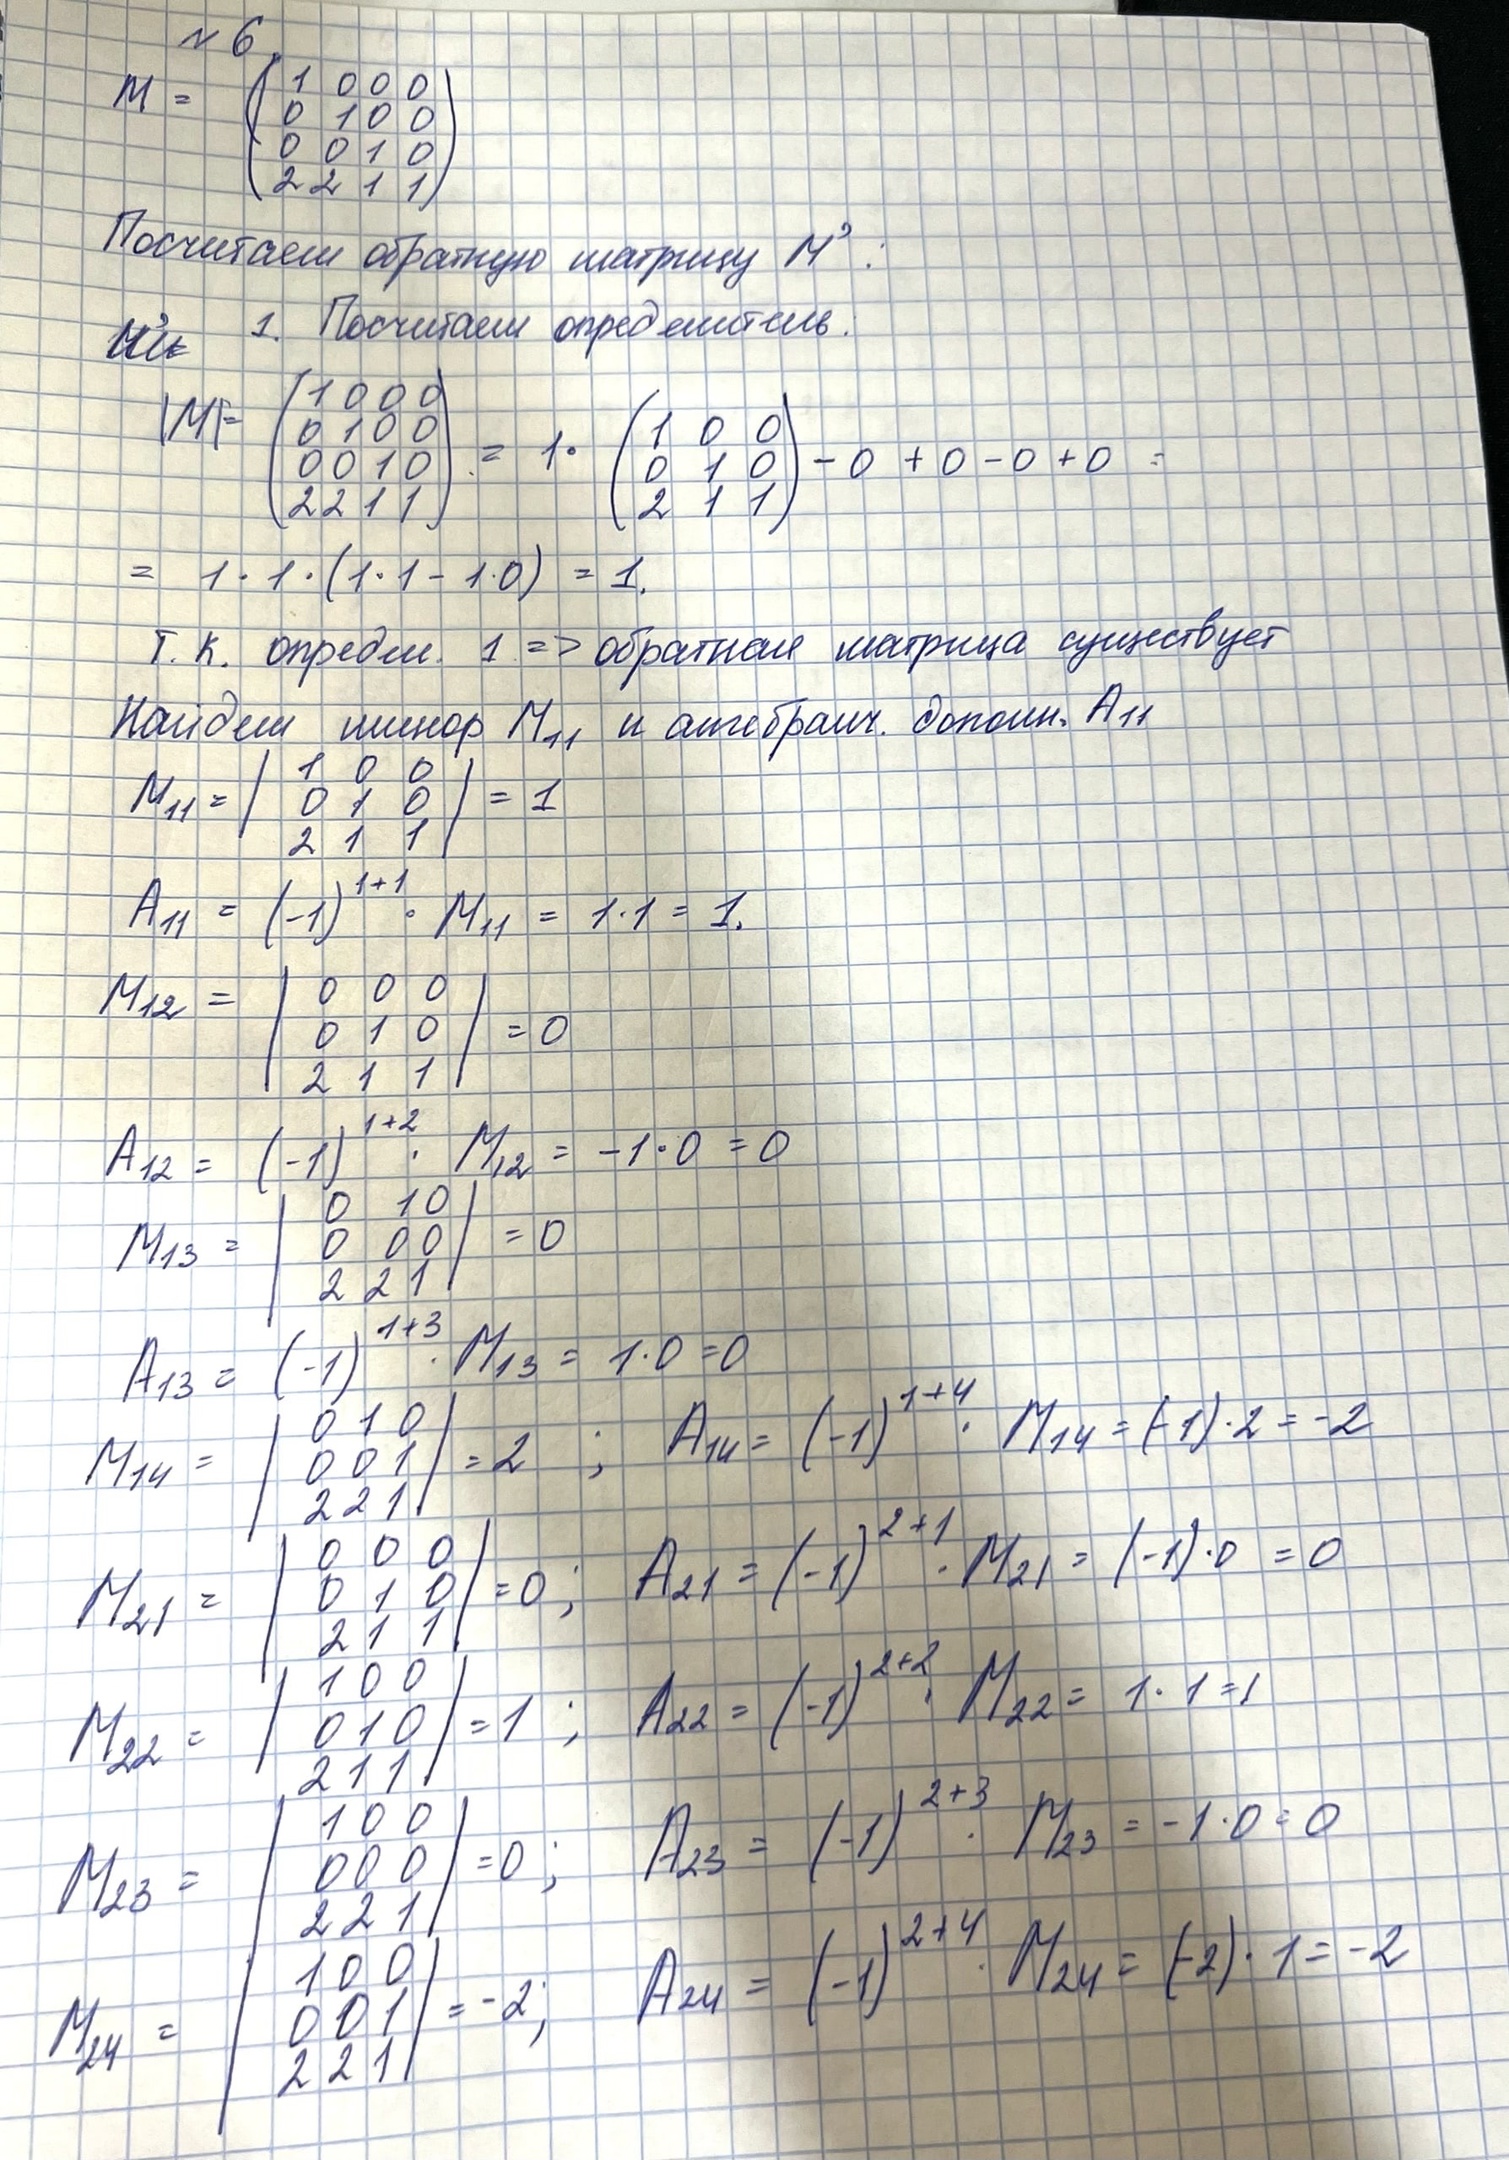 №6.
M = (1 0 0 0
0 1 0 0
0 0 1 0
2 2 1 1)
Посчитаем обратную матрицу M³:
1. Посчитаем определитель:
|M| = (1 0 0 0
0 1 0 0
0 0 1 0
2 2 1 1) = 1· (1 0 0
0 1 0
2 1 1) - 0 + 0 - 0 + 0 =
= 1·1·(1·1 - 1·0) = 1.
Т.к. определ. 1 => обратная матрица существует
Найдем минор M₁₁ и алгебраич. дополн. A₁₁
M₁₁ = |1 0 0
0 1 0
2 1 1| = 1
A₁₁ = (-1)¹⁺¹ · M₁₁ = 1·1 = 1.
M₁₂ = |0 0 0
0 1 0
2 1 1| = 0
A₁₂ = (-1)¹⁺² · M₁₂ = -1·0 = 0
M₁₃ = |0 1 0
0 0 0
2 2 1| = 0
A₁₃ = (-1)¹⁺³ · M₁₃ = 1·0 = 0
M₁₄ = |0 1 0
0 0 1
2 2 1| = 2 ; A₁₄ = (-1)¹⁺⁴ · M₁₄ = (-1)·2 = -2
M₂₁ = |0 0 0
0 1 0
2 1 1| = 0 ; A₂₁ = (-1)²⁺¹ · M₂₁ = (-1)·0 = 0
M₂₂ = |1 0 0
0 1 0
2 1 1| = 1 ; A₂₂ = (-1)²⁺² · M₂₂ = 1·1 = 1
M₂₃ = |1 0 0
0 0 0
2 2 1| = 0 ; A₂₃ = (-1)²⁺³ · M₂₃ = -1·0 = 0
M₂₄ = |1 0 0
0 0 1
2 2 1| = -2 ; A₂₄ = (-1)²⁺⁴ · M₂₄ = (-2)·1 = -2